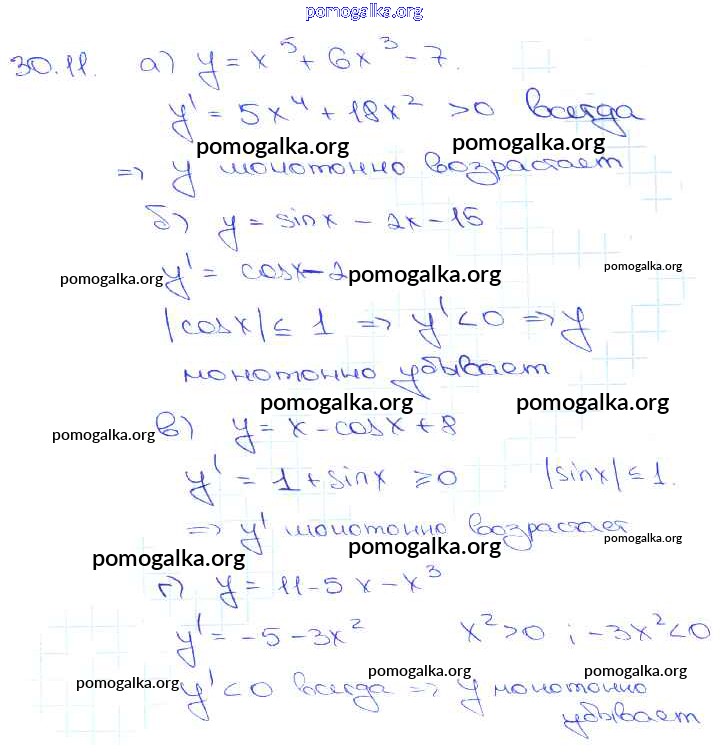 pomogalka.org
30.11. а) y = x⁵ + 6x³ - 7.
y' = 5x⁴ + 18x² > 0 всегда
pomogalka.org pomogalka.org
=> y монотонно возрастает
б) y = sinx - 2x - 15
pomogalka.org y' = cosx - 2 pomogalka.org pomogalka.org
|cosx| ≤ 1 => y' < 0 => y
монотонно убывает
pomogalka.org pomogalka.org
pomogalka.org в) y = x - cosx + 8
y' = 1 + sinx ≥ 0 |sinx| ≤ 1.
=> y' монотонно возрастает
pomogalka.org pomogalka.org pomogalka.org
г) y = 11 - 5x - x³
pomogalka.org
y' = -5 - 3x² x² > 0 ; -3x² < 0
pomogalka.org pomogalka.org
pomogalka.org y' < 0 всегда => y монотонно
убывает